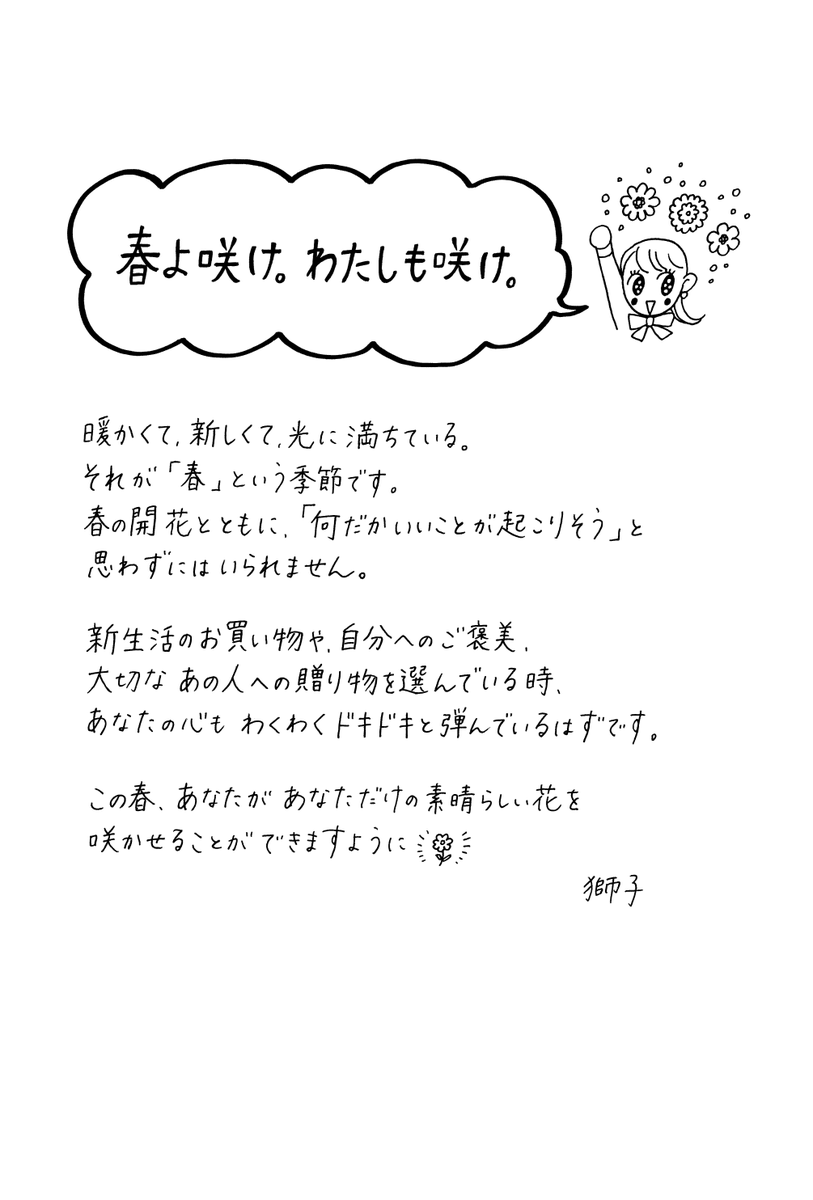 春よ咲け。わたしも咲け。
暖かくて、新しくて、光に満ちている。
それが「春」という季節です。
春の開花とともに、「何だかいいことが起こりそう」と
思わずにはいられません。
新生活のお買い物や、自分へのご褒美、
大切な あの人への贈り物を選んでいる時、
あなたの心も わくわくドキドキと弾んでいるはずです。
この春、あなたが あなただけの素晴らしい花を
咲かせることができますように
獅子